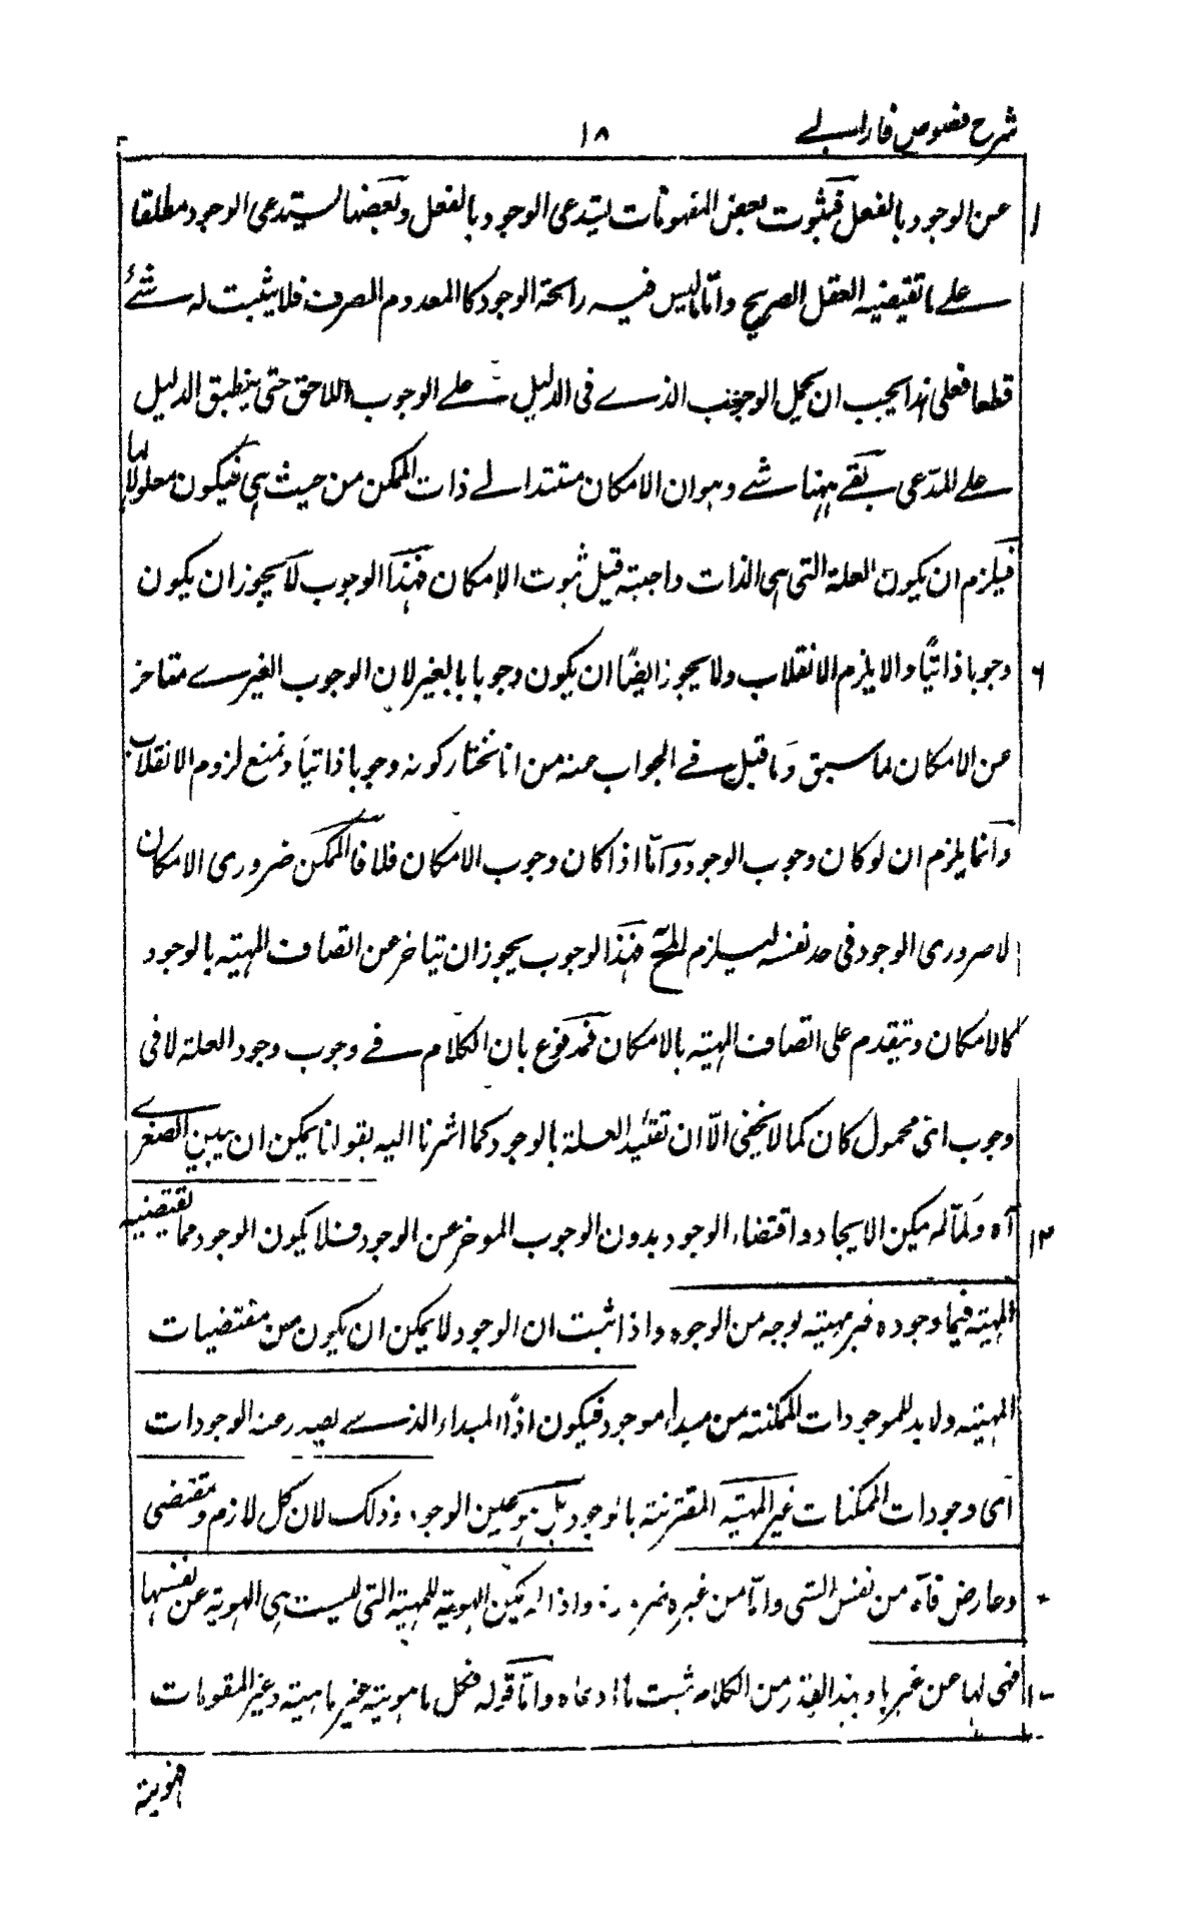 شرح فصوص فارابي ١٨
١ عن الوجود بالفعل فثبوت بعض المفهومات يستدعى الوجود بالفعل وبعضها يستدعى الوجود مطلقا
على ما تقتضيه العقل الصريح واما ما ليس فيه رائحة الوجود كالمعدوم الصرف فلا يثبت له شئ
قطعا فعلى هذا يجب ان يحمل الوجوب الذى فى الدليل على الوجوب اللاحق حتى ينطبق الدليل
على المدعى بقى ههنا شئ وهو ان الامكان مستند الى ذات الممكن من حيث هى فيكون معلولا لها
فيلزم ان يكون العلة التى هى الذات واجبة قبل ثبوت الامكان فهذا الوجوب لا يجوز ان يكون
٦ وجوبا ذاتيًا والا يلزم الانقلاب ولا يجوز ايضًا ان يكون وجوبا بالغير لان الوجوب الغيرى متاخر
عن الامكان لما سبق وما قيل فى الجواب عنه من انا نختار كونه وجوبا ذاتيا ونمنع لزوم الانقلاب
وانما يلزم ان لو كان وجوب الوجود واما اذا كان وجوب الامكان فلا فالممكن ضرورى الامكان
لا ضرورى الوجود فى حد نفسه ليلزم المح فهذا الوجوب يجوز ان يتاخر عن اتصاف المهية بالوجود
كالامكان ويتقدم على اتصاف المهية بالامكان فمدفوع بان الكلام فى وجوب وجود العلة لا فى
وجوب اى محمول كان كما لا يخفى الا ان تقيد العلة بالوجود كما اشرنا اليه بقولنا يمكن ان يبين الصغرى
١٢ آه ولما لم يكن الايجاد واقتضاء الوجود بدون الوجوب الموخر عن الوجود فلا يكون الوجود مما يقتضيه
المهية فيما وجوده غير مهيته بوجه من الوجوه واذا ثبت ان الوجود لا يمكن ان يكون من مقتضيات
المهية ولا بد للموجودات الممكنة من مبداء موجود فيكون اذًا المبداء الذى يصدر عنه الوجودات
اى وجودات الممكنات غير المهية المقترنة بالوجود بل هو عين الوجود وذلك لان كل لازم ومقتضى
وعارض فاما من نفس الشى واما من غيره واذا لم يكن الهوية للمهية التى ليست هى الهوية عن نفسها
فهى لها عن غيرها وبهذا القدر من الكلام ثبت ما ادعاه واما قوله فكل ما هويته غير ماهيته وغير المقومات
فهويته